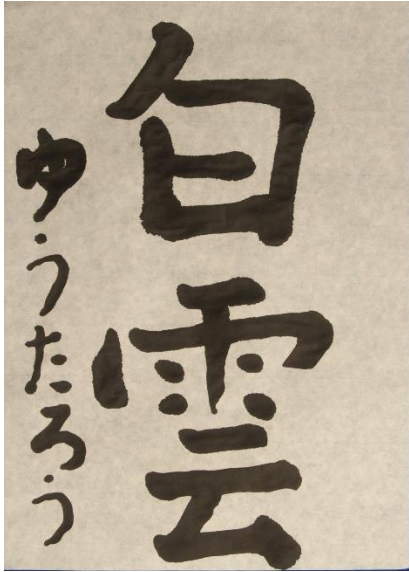 白雲
ゆうたろう